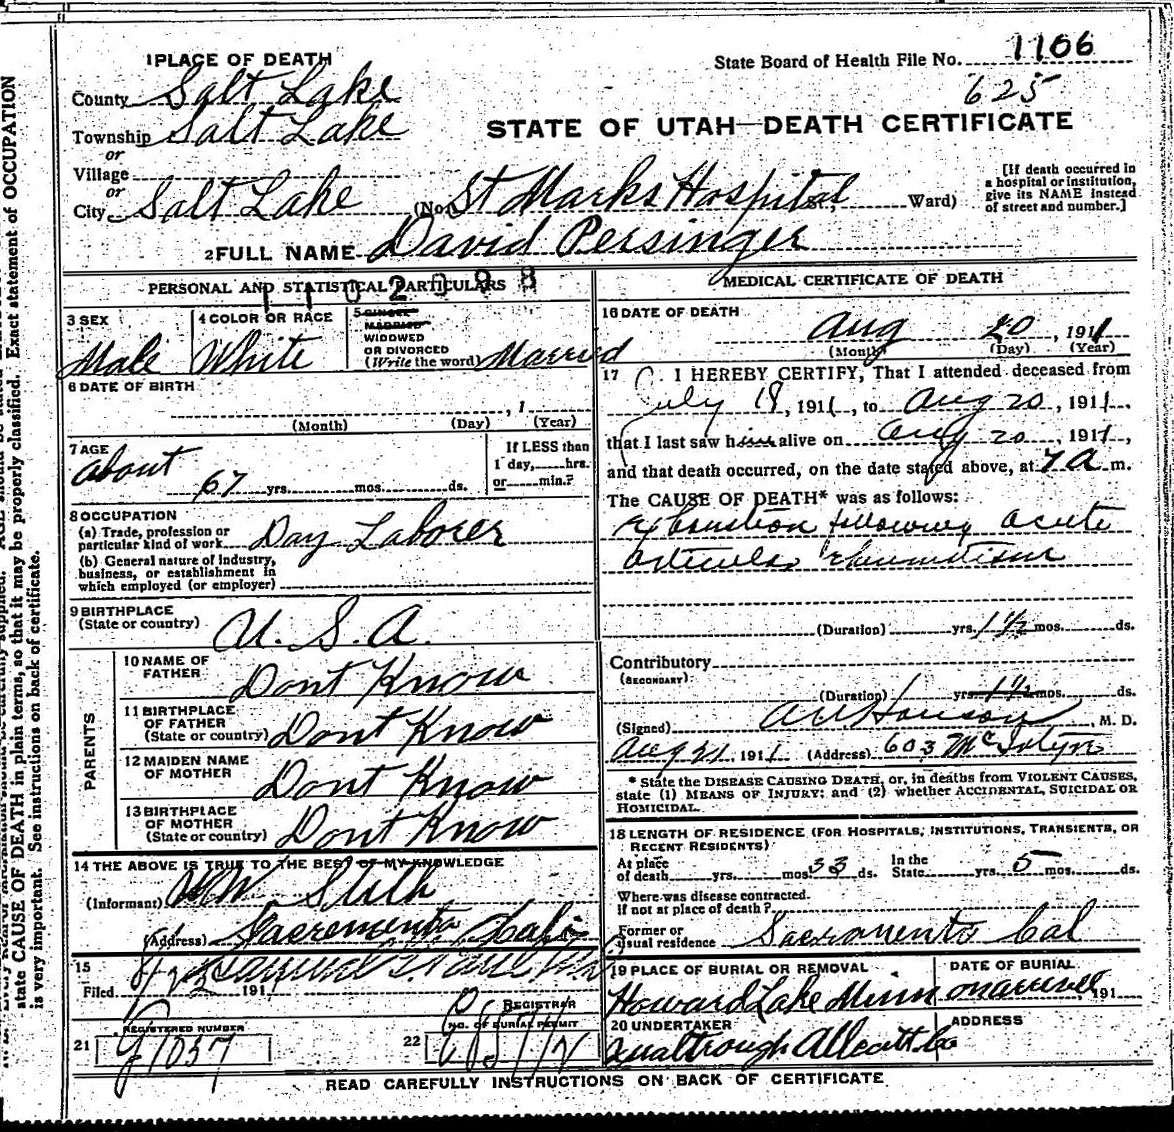 1 PLACE OF DEATH
State Board of Health File No. 1106
625
County Salt Lake
Township Salt Lake
or
Village
or
City Salt Lake (No. St Marks Hospital, Ward)
[If death occurred in
a hospital or institution,
give its NAME instead
of street and number.]
STATE OF UTAH—DEATH CERTIFICATE
2 FULL NAME David Persinger
PERSONAL AND STATISTICAL PARTICULARS
3 SEX
Male
4 COLOR OR RACE
White
5 SINGLE
MARRIED
WIDOWED
OR DIVORCED
(Write the word) Married
6 DATE OF BIRTH
, 1
(Month) (Day) (Year)
7 AGE
about 67 yrs. mos. ds.
If LESS than
1 day, hrs.
or min.?
8 OCCUPATION
(a) Trade, profession or
particular kind of work Day Laborer
(b) General nature of industry,
business, or establishment in
which employed (or employer)
9 BIRTHPLACE
(State or country) U. S. A.
PARENTS
10 NAME OF
FATHER Dont Know
11 BIRTHPLACE
OF FATHER
(State or country) Dont Know
12 MAIDEN NAME
OF MOTHER Dont Know
13 BIRTHPLACE
OF MOTHER
(State or country) Dont Know
14 THE ABOVE IS TRUE TO THE BEST OF MY KNOWLEDGE
(Informant)
(Address) Sacremento
15
Filed 191
REGISTRAR
21 REGISTERED NUMBER
1037
22 NO. OF BURIAL PERMIT
MEDICAL CERTIFICATE OF DEATH
16 DATE OF DEATH
Aug 20, 1911
(Month) (Day) (Year)
17 I HEREBY CERTIFY, That I attended deceased from
July 18, 1911, to Aug 20, 1911.
that I last saw him alive on Aug 20, 1911,
and that death occurred, on the date stated above, at 7 a m.
The CAUSE OF DEATH* was as follows:
Exhaustion following acute
articular rheumatism
(Duration) yrs. 1 1/2 mos. ds.
Contributory
(SECONDARY)
(Duration) 1 yrs. 1 1/2 mos. ds.
(Signed) , M. D.
Aug 21, 1911 (Address) 603 McIntyre
* State the DISEASE CAUSING DEATH, or, in deaths from VIOLENT CAUSES,
state (1) MEANS OF INJURY; and (2) whether ACCIDENTAL, SUICIDAL OR
HOMICIDAL.
18 LENGTH OF RESIDENCE (FOR HOSPITALS, INSTITUTIONS, TRANSIENTS, OR
RECENT RESIDENTS)
At place
of death yrs. mos. 33 ds.
In the
State yrs. 5 mos. ds.
Where was disease contracted.
if not at place of death?
Former or
usual residence Sacramento Cal
19 PLACE OF BURIAL OR REMOVAL
Howard Lake Minn
DATE OF BURIAL
on arrival 191
20 UNDERTAKER
ADDRESS
READ CAREFULLY INSTRUCTIONS ON BACK OF CERTIFICATE
state CAUSE OF DEATH in plain terms, so that it may be properly classified. Exact statement of OCCUPATION
is very important. See instructions on back of certificate.